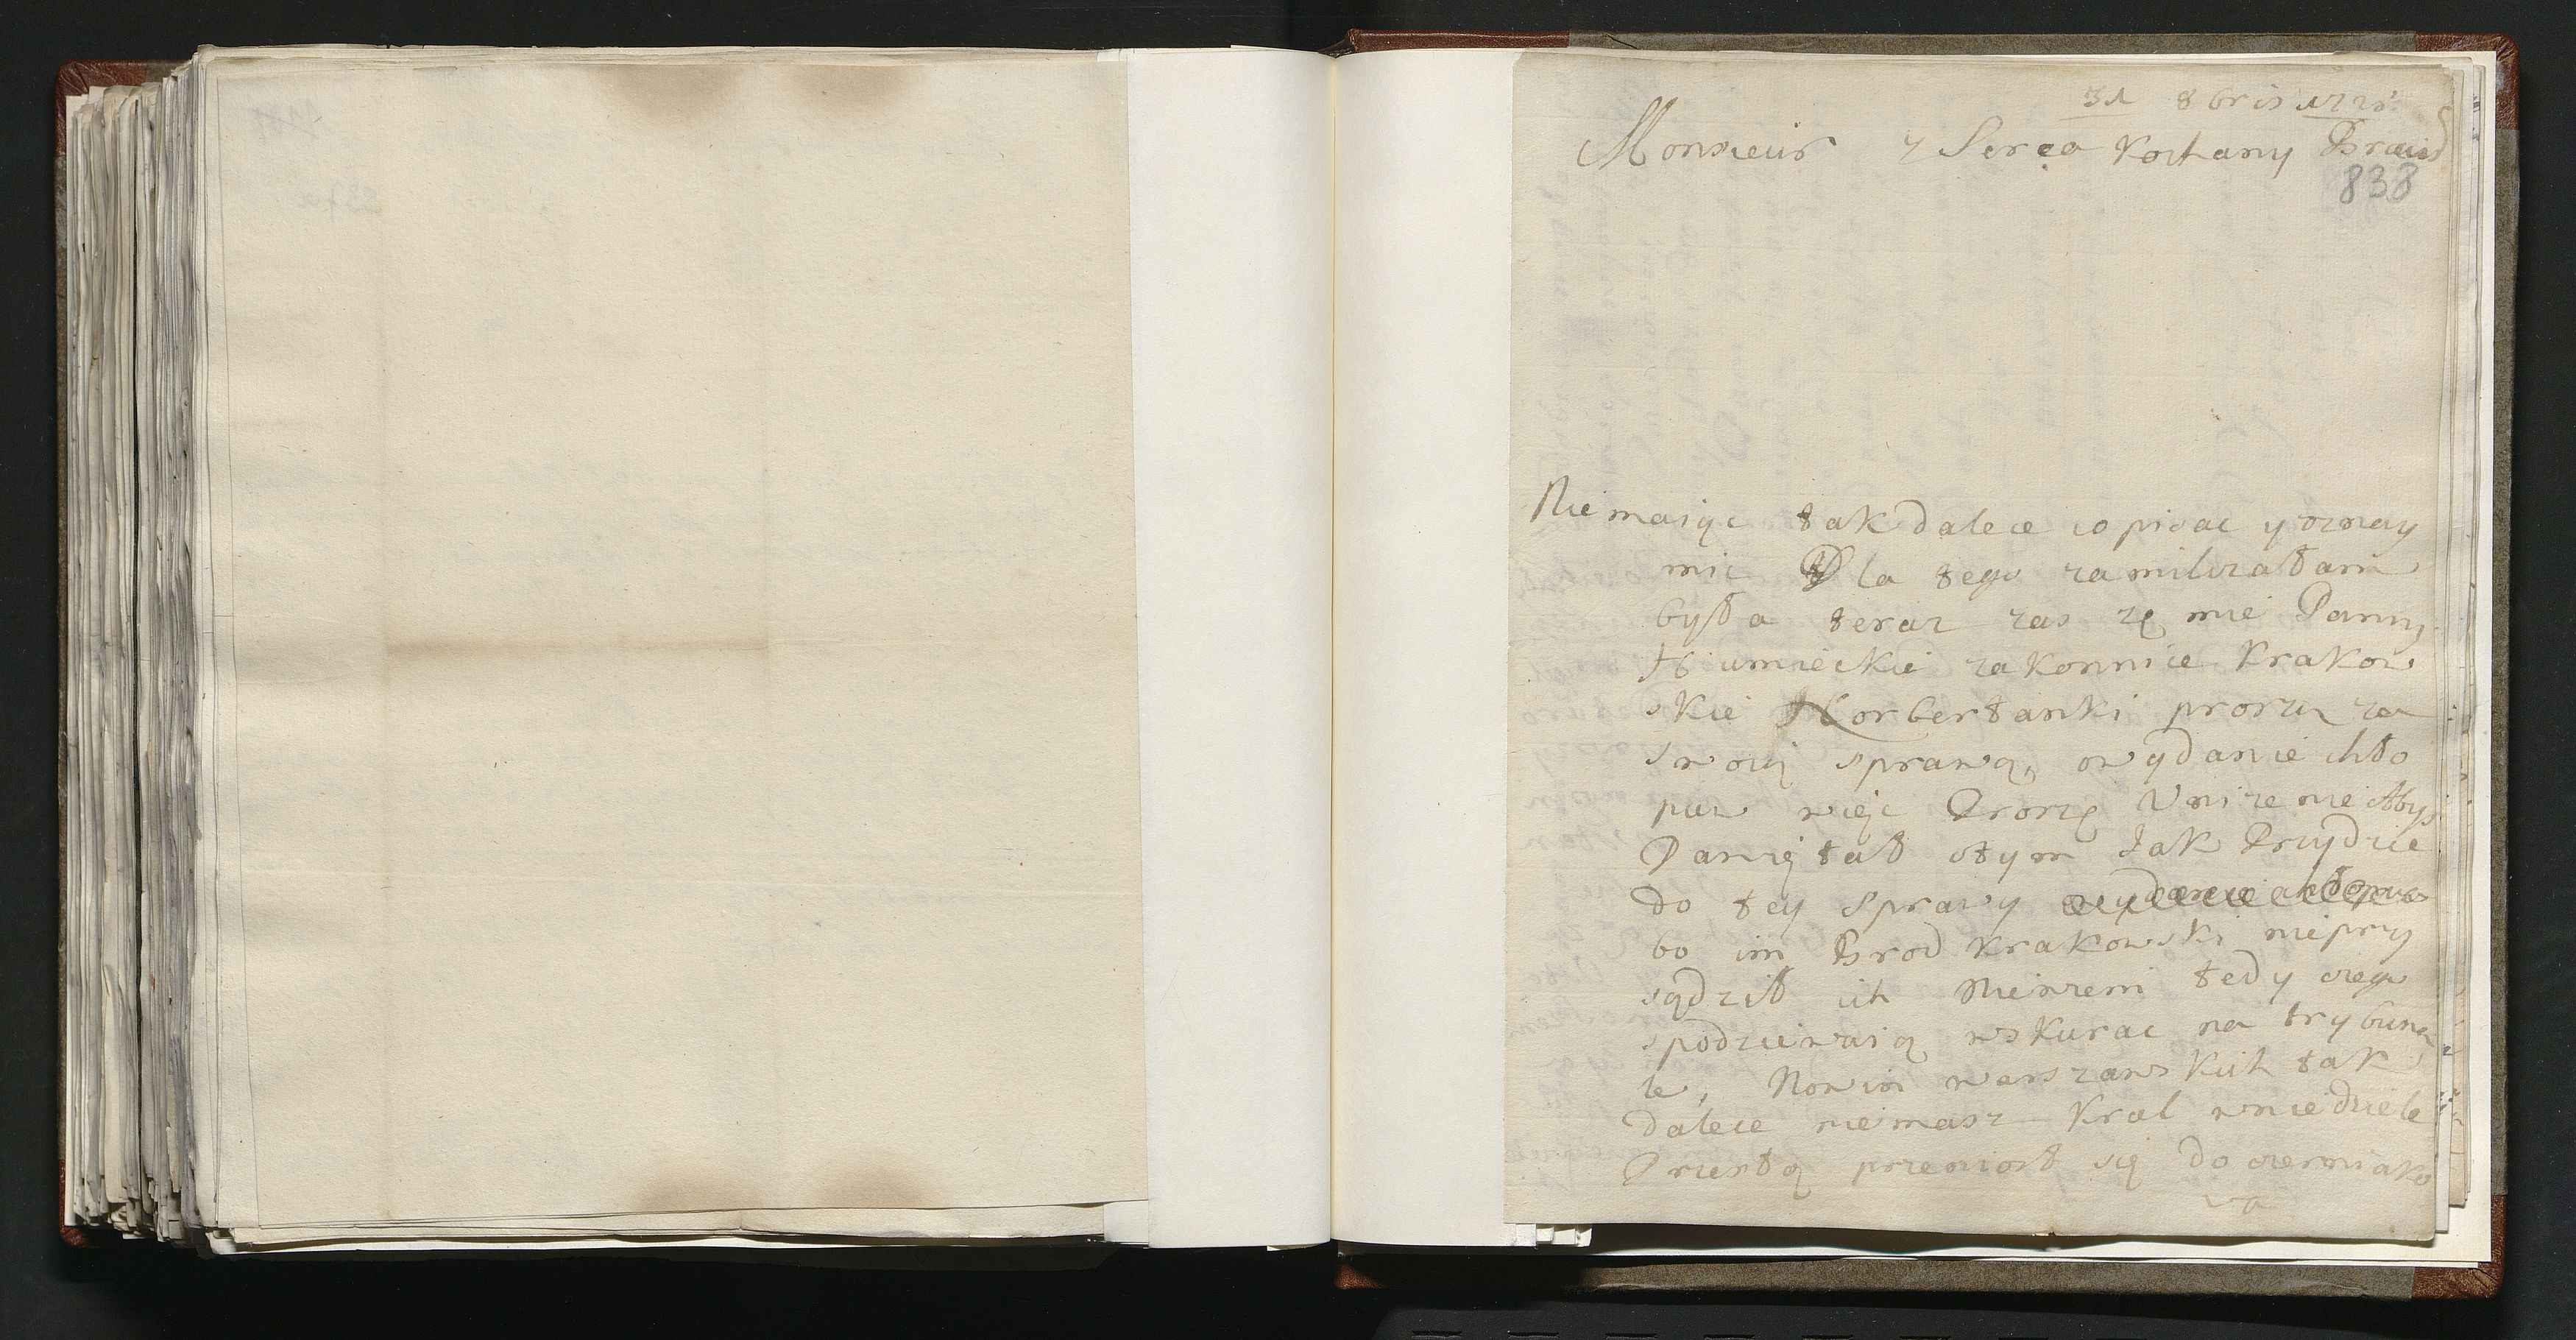 31 8bris 172
Monsieur y Serca Kochany Bracis
838
Nie maiąc tak dalece co pisac y oznay
mic Dla tego zamilczałam
była teraz zas zę mie Panny
tłumieckie zakonnice Krakow
skie Norbertanki proszą za
swoią sprawą, o wydanie chło
puw więc Proszę Vnizenie Abys
Pamiętał otym Jak Przydzie
do tey Sprawy
bo im Grod Krakowski nieprzy
sądził ich Niewzem tedy czego
spodziewaią wskurac na trybuna
le, Nowin warszawskich tak
dalece niemasz Kral wniedziele
Przeszłą przeniosł się do czerniako
wa